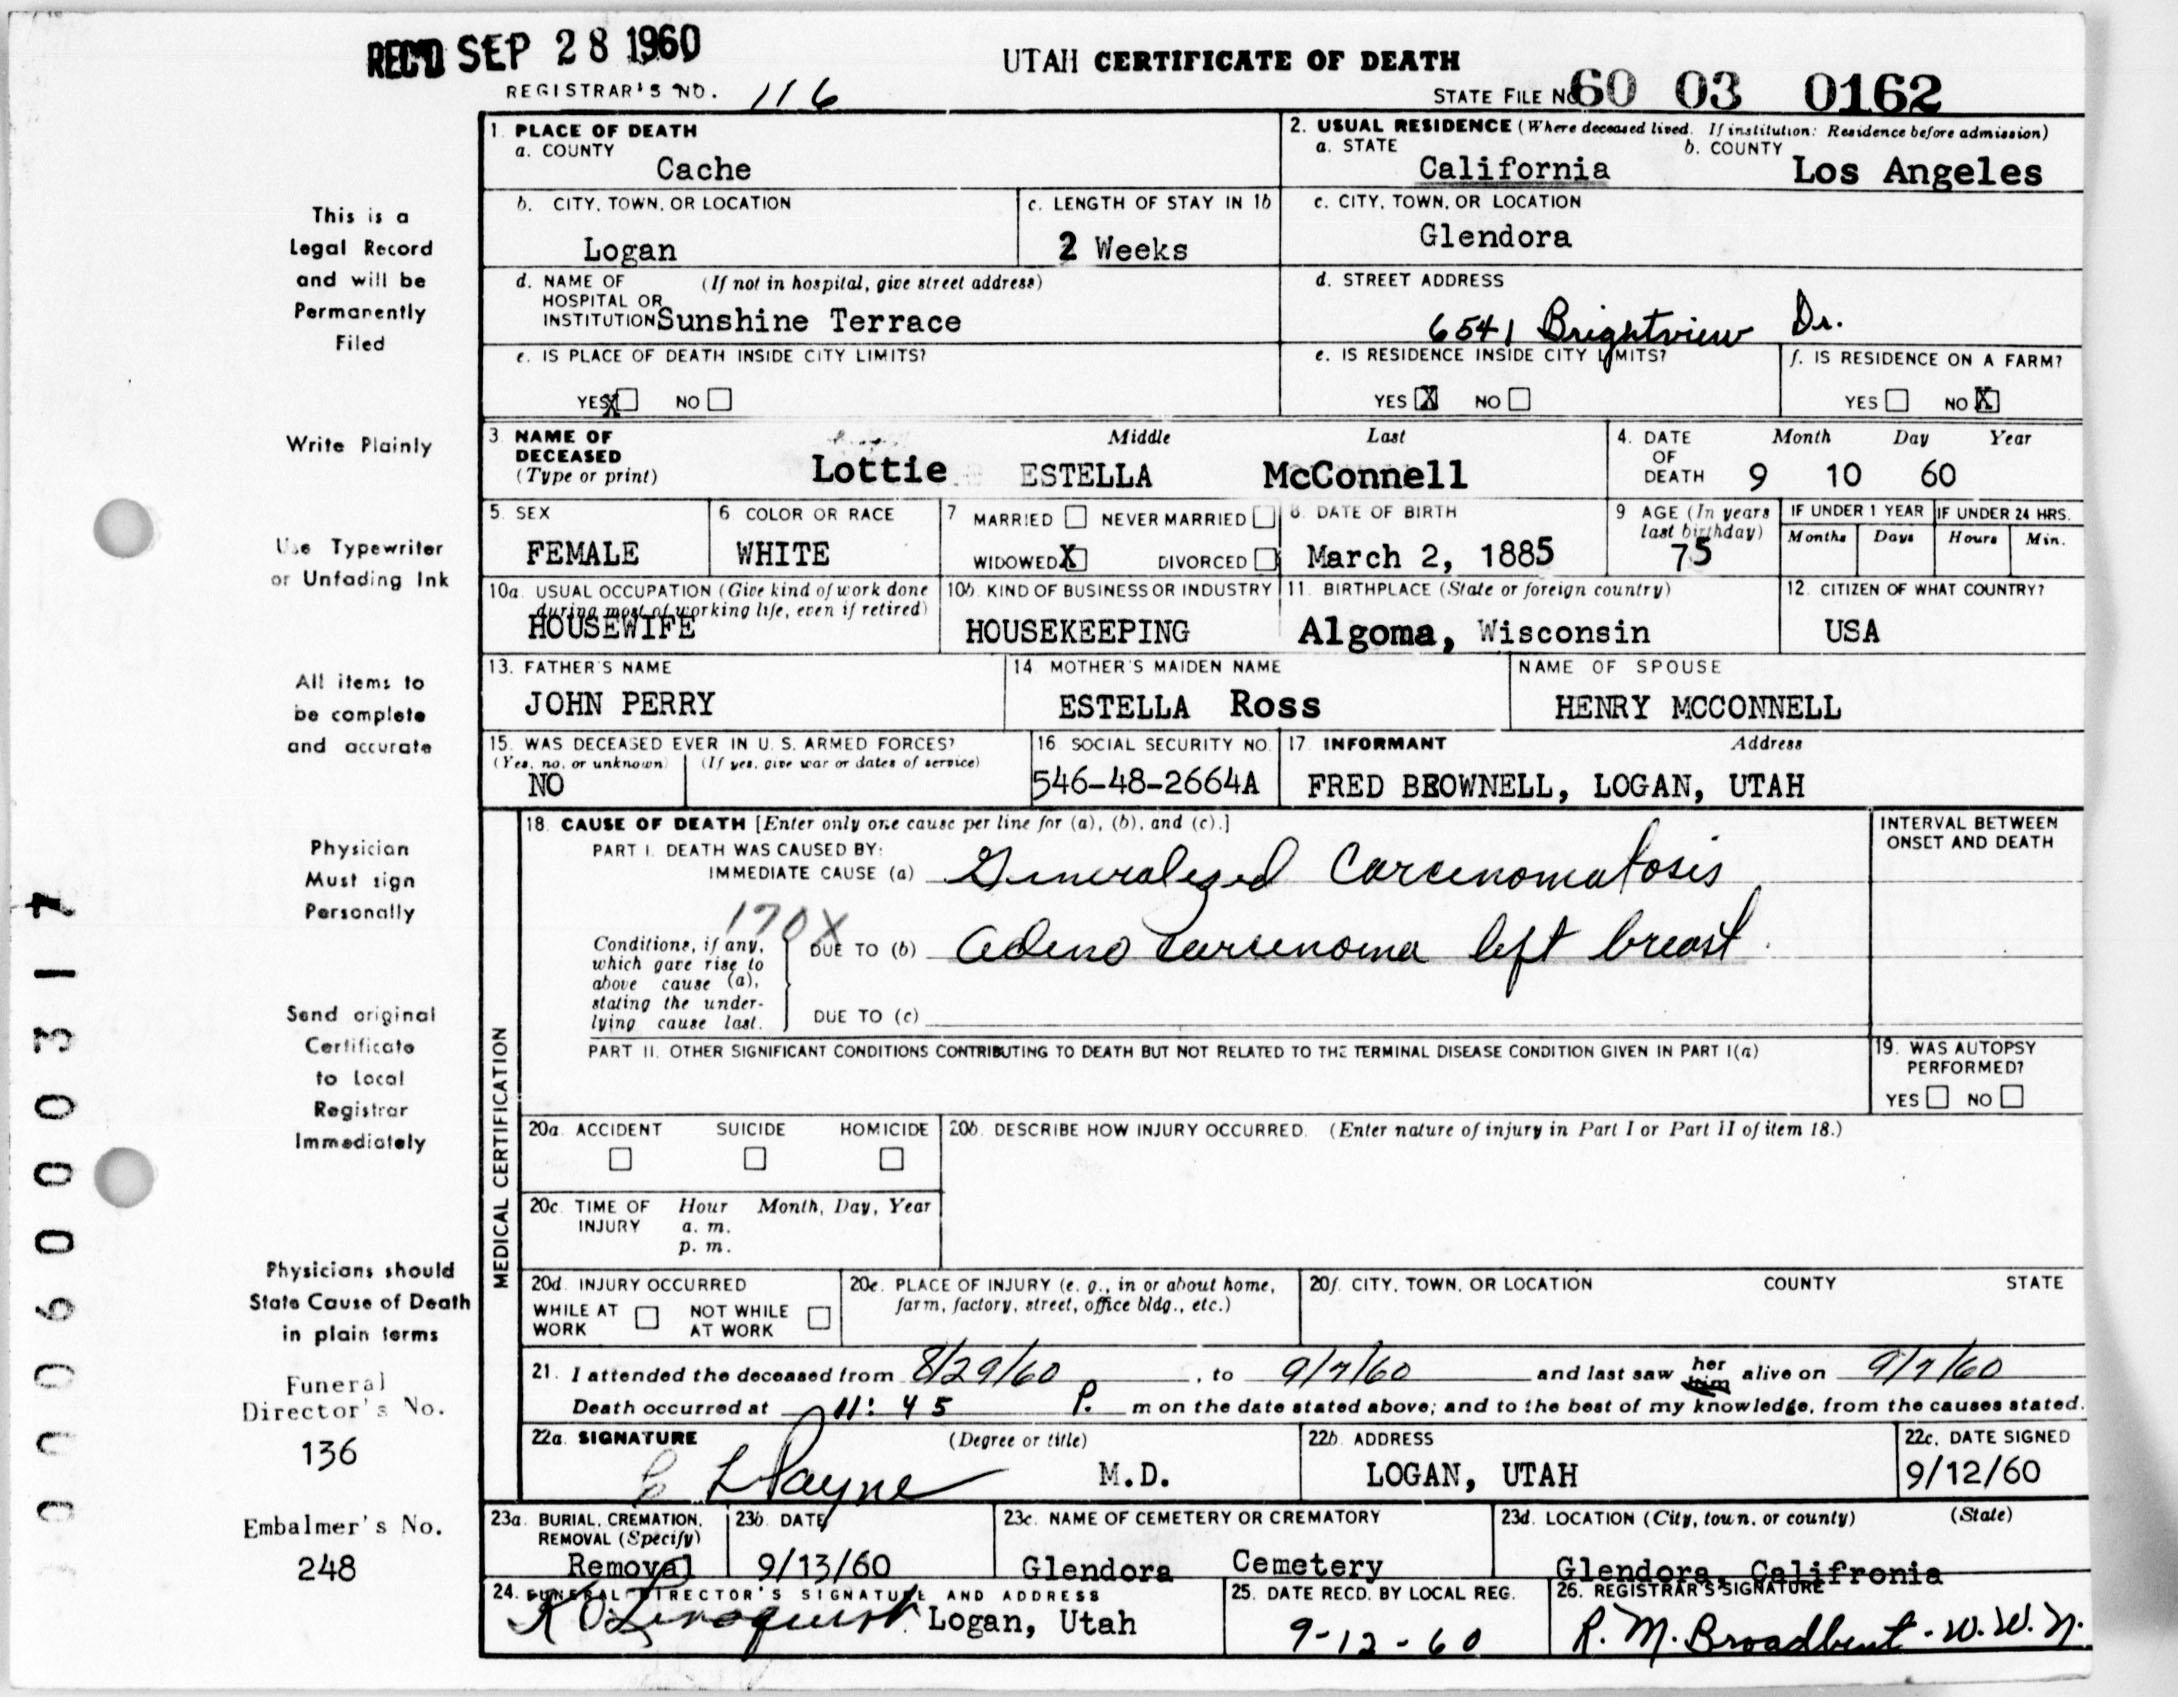 REC'D SEP 28 1960
UTAH CERTIFICATE OF DEATH
REGISTRAR'S NO. 116
STATE FILE NO. 60 03 0162
This is a
Legal Record
and will be
Permanently
Filed
Write Plainly
Use Typewriter
or Unfading Ink
All items to
be complete
and accurate
Physician
Must sign
Personally
Send original
Certificate
to Local
Registrar
Immediately
Physicians should
State Cause of Death
in plain terms
Funeral
Director's No.
136
Embalmer's No.
248
1. PLACE OF DEATH
a. COUNTY
Cache
2. USUAL RESIDENCE (Where deceased lived. If institution: Residence before admission)
a. STATE California
b. COUNTY Los Angeles
b. CITY, TOWN, OR LOCATION
Logan
c. LENGTH OF STAY IN 1b
2 Weeks
c. CITY, TOWN, OR LOCATION
Glendora
d. NAME OF (If not in hospital, give street address)
HOSPITAL OR
INSTITUTION Sunshine Terrace
d. STREET ADDRESS
6541 Brightview Dr.
e. IS PLACE OF DEATH INSIDE CITY LIMITS?
YES X NO
e. IS RESIDENCE INSIDE CITY LIMITS?
YES X NO
f. IS RESIDENCE ON A FARM?
YES NO X
3. NAME OF
DECEASED
(Type or print)
Middle Last
Lottie ESTELLA McConnell
4. DATE
OF
DEATH
Month Day Year
9 10 60
5. SEX
FEMALE
6. COLOR OR RACE
WHITE
7. MARRIED NEVER MARRIED
WIDOWED X DIVORCED
8. DATE OF BIRTH
March 2, 1885
9. AGE (In years
last birthday)
75
IF UNDER 1 YEAR
Months Days
IF UNDER 24 HRS.
Hours Min.
10a. USUAL OCCUPATION (Give kind of work done
during most of working life, even if retired)
HOUSEWIFE
10b. KIND OF BUSINESS OR INDUSTRY
HOUSEKEEPING
11. BIRTHPLACE (State or foreign country)
Algoma, Wisconsin
12. CITIZEN OF WHAT COUNTRY?
USA
13. FATHER'S NAME
JOHN PERRY
14. MOTHER'S MAIDEN NAME
ESTELLA Ross
NAME OF SPOUSE
HENRY MCCONNELL
15. WAS DECEASED EVER IN U. S. ARMED FORCES?
(Yes, no, or unknown) (If yes, give war or dates of service)
NO
16. SOCIAL SECURITY NO.
546-48-2664A
17. INFORMANT Address
FRED BROWNELL, LOGAN, UTAH
MEDICAL CERTIFICATION
18. CAUSE OF DEATH [Enter only one cause per line for (a), (b), and (c).]
PART I. DEATH WAS CAUSED BY:
IMMEDIATE CAUSE (a) Generalized Carcinomatosis
170X
Conditions, if any,
which gave rise to
above cause (a),
stating the under-
lying cause last.
DUE TO (b) Adeno carcinoma left breast.
DUE TO (c)
INTERVAL BETWEEN
ONSET AND DEATH
PART II. OTHER SIGNIFICANT CONDITIONS CONTRIBUTING TO DEATH BUT NOT RELATED TO THE TERMINAL DISEASE CONDITION GIVEN IN PART I(a)
19. WAS AUTOPSY
PERFORMED?
YES NO
20a. ACCIDENT SUICIDE HOMICIDE
20b. DESCRIBE HOW INJURY OCCURRED. (Enter nature of injury in Part I or Part II of item 18.)
20c. TIME OF Hour Month, Day, Year
INJURY a. m.
p. m.
20d. INJURY OCCURRED
WHILE AT NOT WHILE
WORK AT WORK
20e. PLACE OF INJURY (e. g., in or about home,
farm, factory, street, office bldg., etc.)
20f. CITY, TOWN, OR LOCATION COUNTY STATE
21. I attended the deceased from 8/29/60, to 9/7/60 and last saw her him alive on 9/7/60
Death occurred at 11:45 P. m on the date stated above; and to the best of my knowledge, from the causes stated.
22a. SIGNATURE (Degree or title)
C L Payne M.D.
22b. ADDRESS
LOGAN, UTAH
22c. DATE SIGNED
9/12/60
23a. BURIAL, CREMATION,
REMOVAL (Specify)
Removal
23b. DATE
9/13/60
23c. NAME OF CEMETERY OR CREMATORY
Glendora Cemetery
23d. LOCATION (City, town, or county) (State)
Glendora, Califronia
24. FUNERAL DIRECTOR'S SIGNATURE AND ADDRESS
Logan, Utah
25. DATE RECD. BY LOCAL REG.
9-12-60
26. REGISTRAR'S SIGNATURE
R. M. Broadbent - W. W. N.
000600317